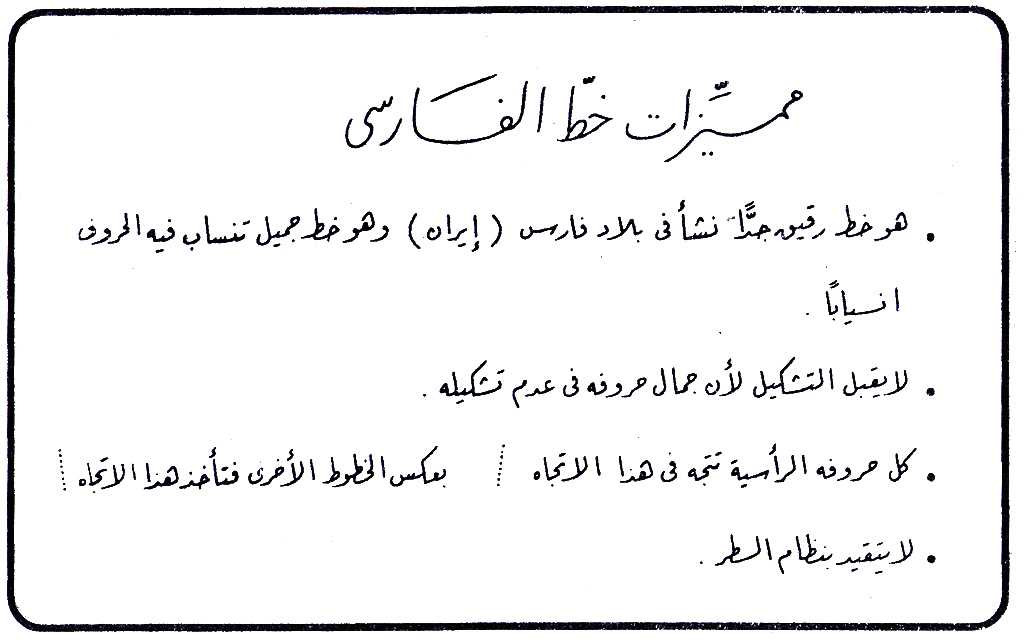 مميِّزات خطّ الفارسى
• هو خط رقيق جدًّا نشأ فى بلاد فارس (إيران) وهو خط جميل تنساب فيه الحروف
انسيابًا .
• لا يقبل التشكيل لأن جمال حروفه فى عدم تشكيله .
• كل حروفه الرأسية تتجه فى هذا الاتجاه بعكس الخطوط الأخرى فتأخذ هذا الاتجاه
• لا يتقيد بنظام السطر .